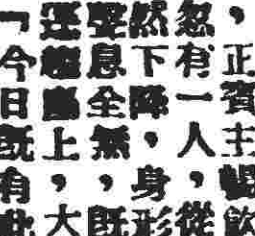 ，正賓主暢飲
忽有一人，從
然下降，身形
息全無，既
上，大
「今日既有此